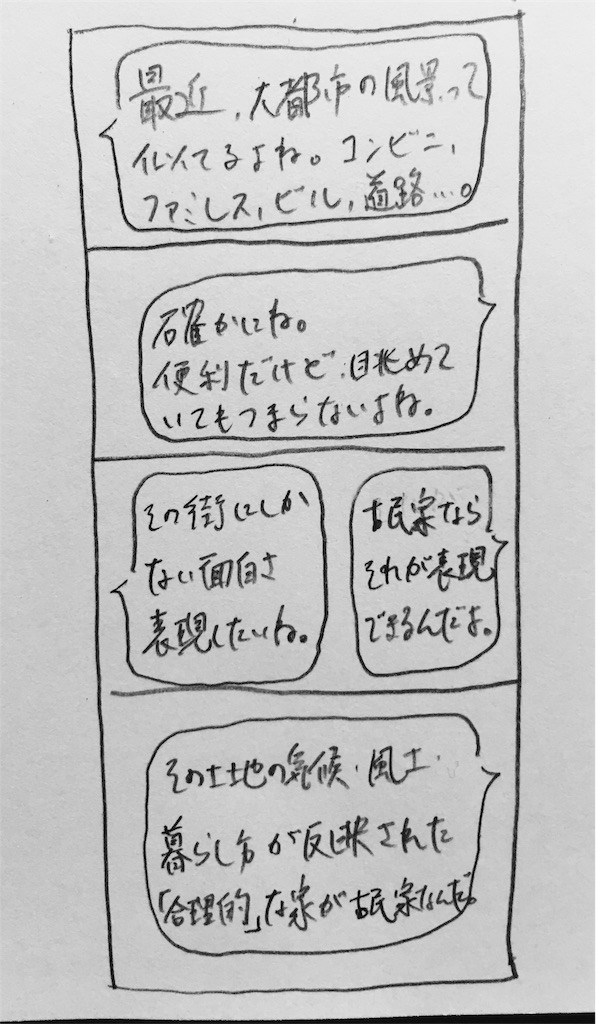 最近、大都市の風景って
似てるよね。コンビニ、
ファミレス、ビル、道路…。
確かにね。
便利だけど、眺めて
いてもつまらないよね。
その街にしか
ない面白さ
表現したいね。
古民家なら
それが表現
できるんだよ。
その土地の気候・風土・
暮らし方が反映された
「合理的」な家が古民家なんだ。